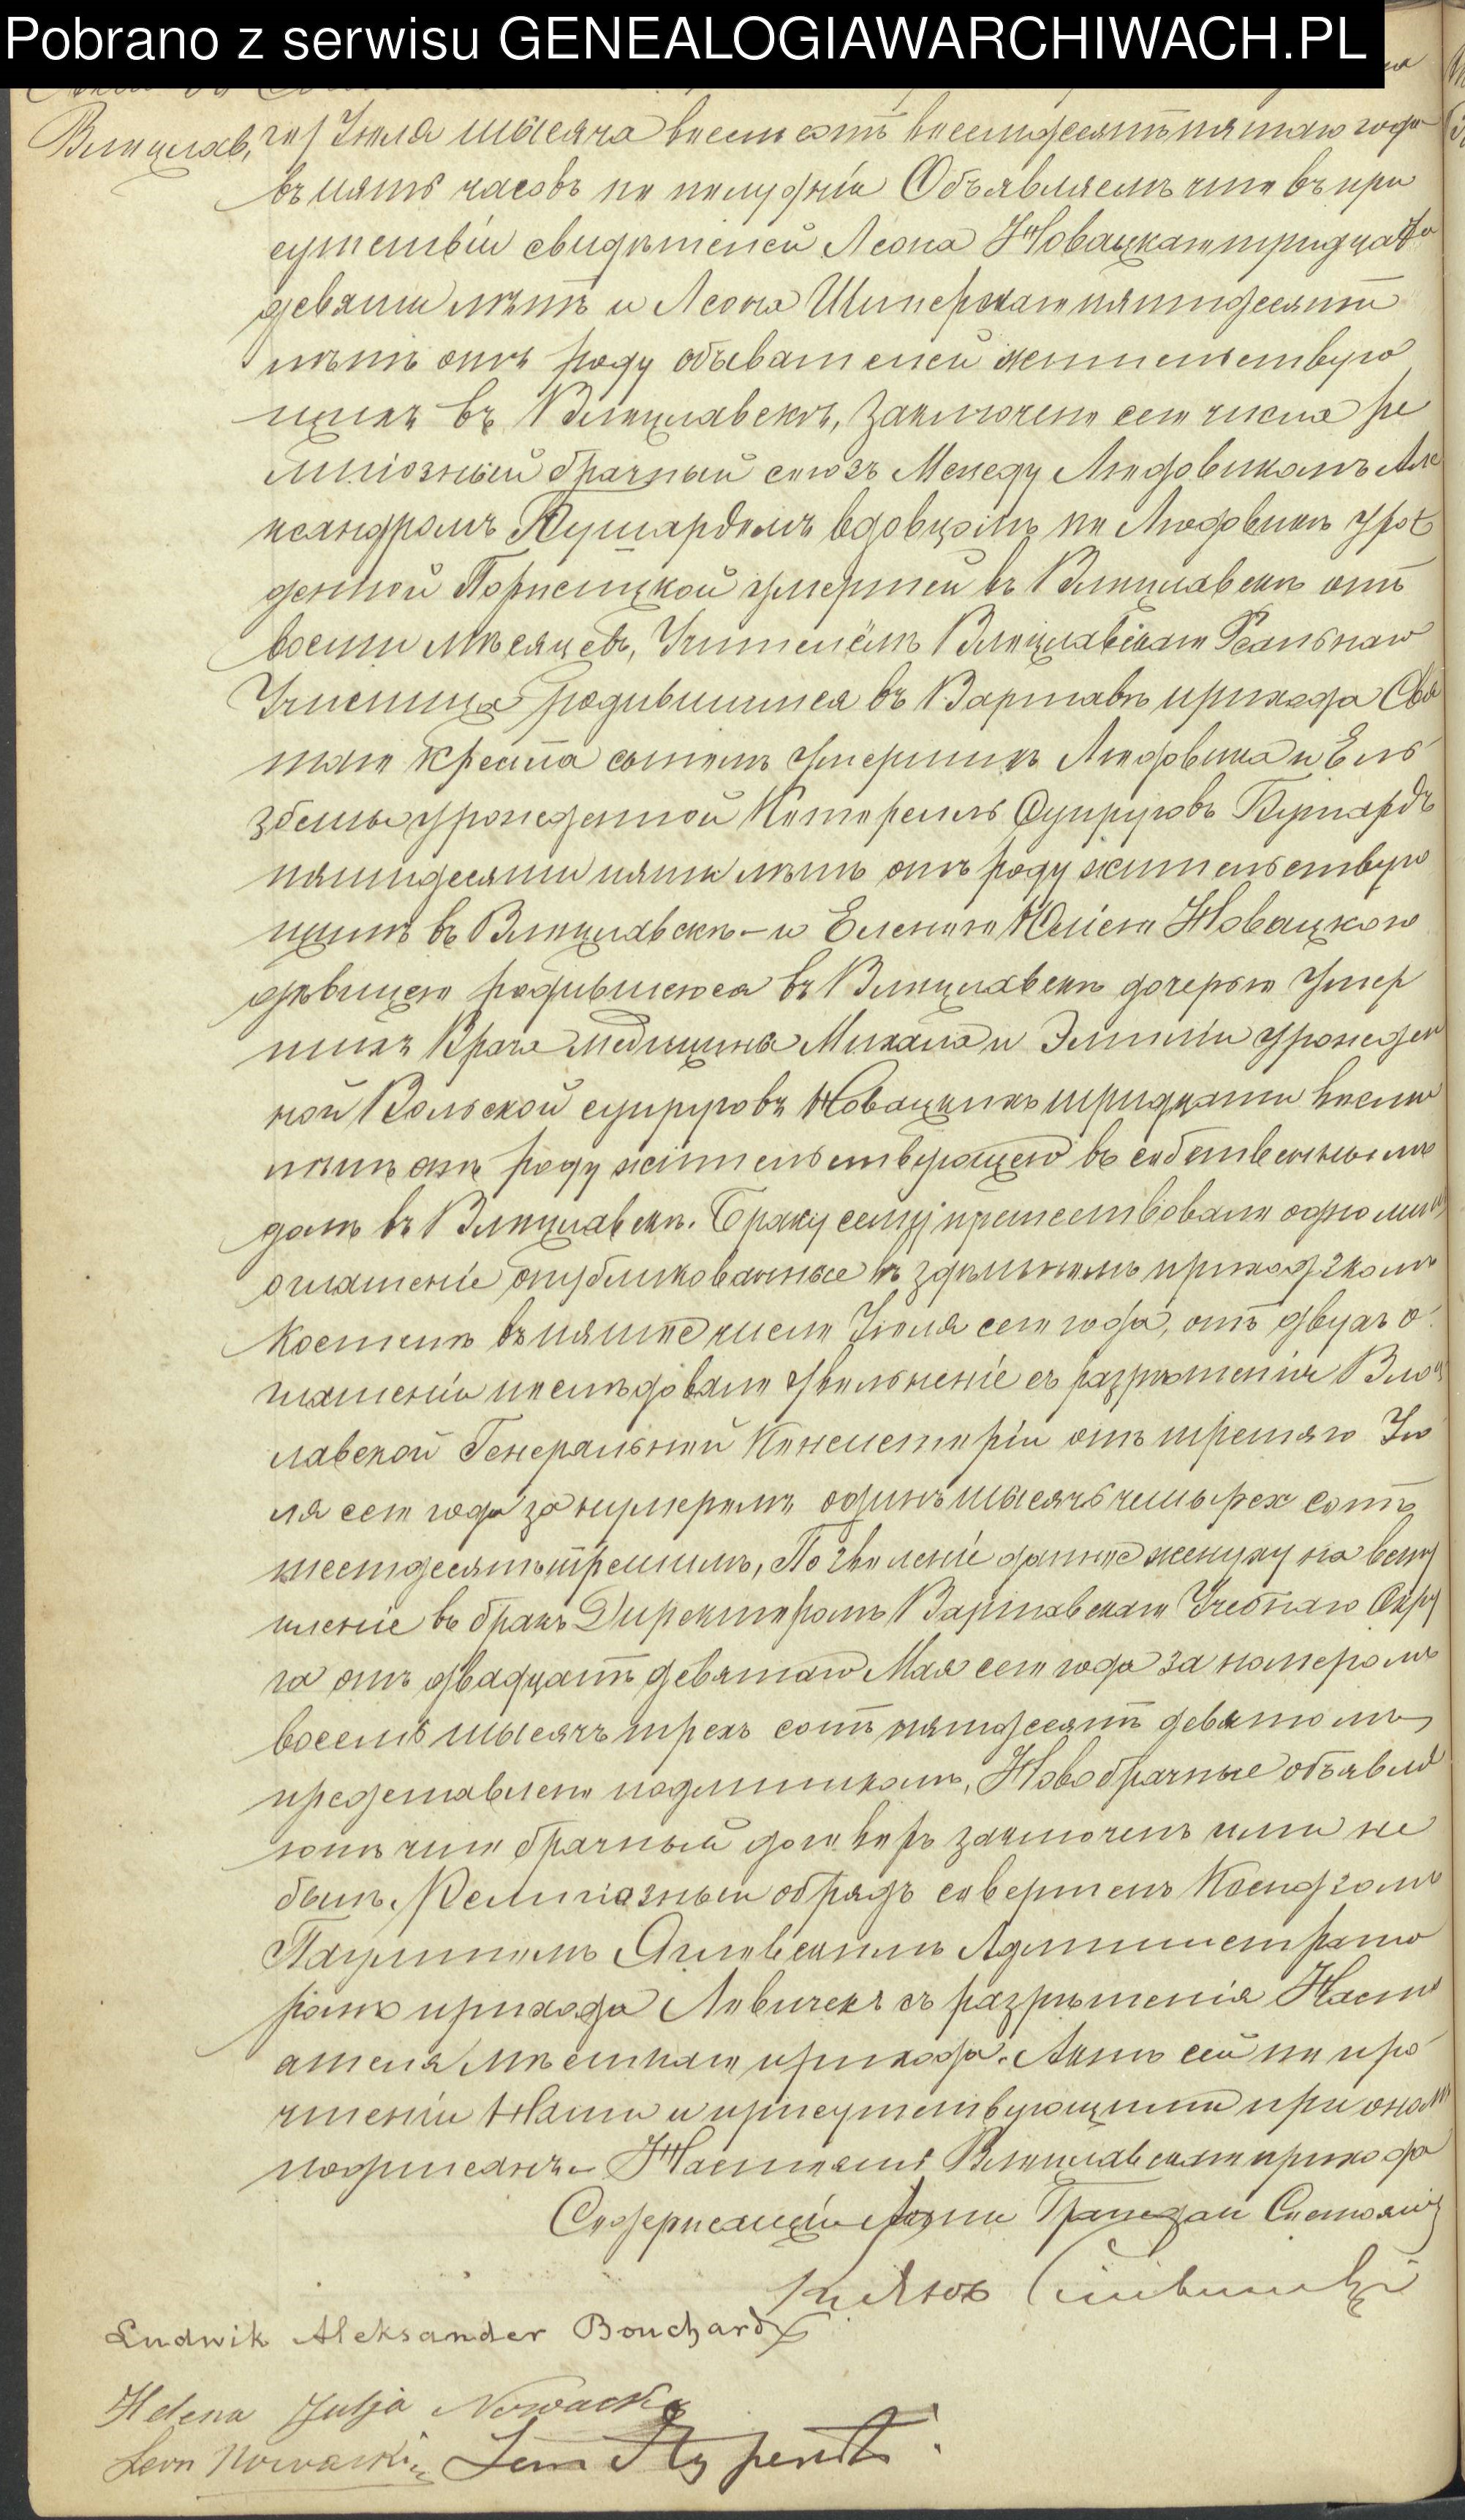 Pobrano z serwisu GENEALOGIAWARCHIWACH.PL
Влоцлав, Іюля тысяча восемь сотъ восемдесятъ пятаго года
въ пять часовъ по полудніи Объявляемъ что въ при
сутствіи свидѣтелей Леона Новацкаго тридцать
девяти лѣтъ и Леона пятидесяти
лѣтъ отъ роду обывателей жительствую
щихъ въ Влоцлавскѣ, заключенъ сего числа ре
лигіозный брачный союзъ Между Людовикомъ Але
ксандромъ Бушардомъ вдовцомъ по Людовикѣ урож
денной умершей въ Влоцлавскѣ отъ
восьми мѣсяцевъ, Учителемъ Влоцлавскаго Реальнаго
Училища родившимся въ Варшавѣ прихода Свя
таго Креста сыномъ умершихъ Людовика и Ель
збеты урожденной Супруговъ Бушардъ
пятидесяти пяти лѣтъ отъ роду жительствую
щимъ въ Влоцлавскѣ – и Еленою Юліею Новацкою
дѣвицею родившеюся въ Влоцлавскѣ дочерью Умер
шихъ Врача Медицины Михала и Эмиліи урожден
ной Вольской супруговъ Новацкихъ тридцати восьми
лѣтъ отъ роду жительствующею въ собственномъ
домѣ въ Влоцлавскѣ. Браку сему предшествовало одно
оглашеніе опубликованное въ здѣшнемъ приходскомъ
Костелѣ въ пятое число Іюля сего года, отъ двухъ о
глашеніи послѣдовало увольненіе съ разрѣшенія Влоц
лавской Генеральной Консисторіи отъ третяго Ію
ля сего года за нумеромъ одинъ тысячъ четырех сотъ
шестдесятъ третимъ, Позволеніе данное жениху на всту
пленіе въ бракъ Директоромъ Варшавскаго Учебнаго Окру
га отъ двадцать девятаго Мая сего года за номеромъ
восемь тысячъ трехъ сотъ пятдесятъ девятомъ
представлено подлинникомъ, Новобрачные объявля
ютъ что брачный договоръ заключенъ ими не
былъ. Религіозный обрядъ совершенъ Ксендзомъ
Паулиномъ Администрато
ромъ прихода съ разрѣшенія Насто
ятеля мѣстнаго прихода. Актъ сей по про
чтеніи Нами и присутствующими при ономъ
подписанъ – Настоятель Влоцлавскаго прихода
Содержащій Акты Граждан Состоянія
Ludwik Aleksander Bouchard
Helena Julja Nowacka
Leon Nowacki Leon